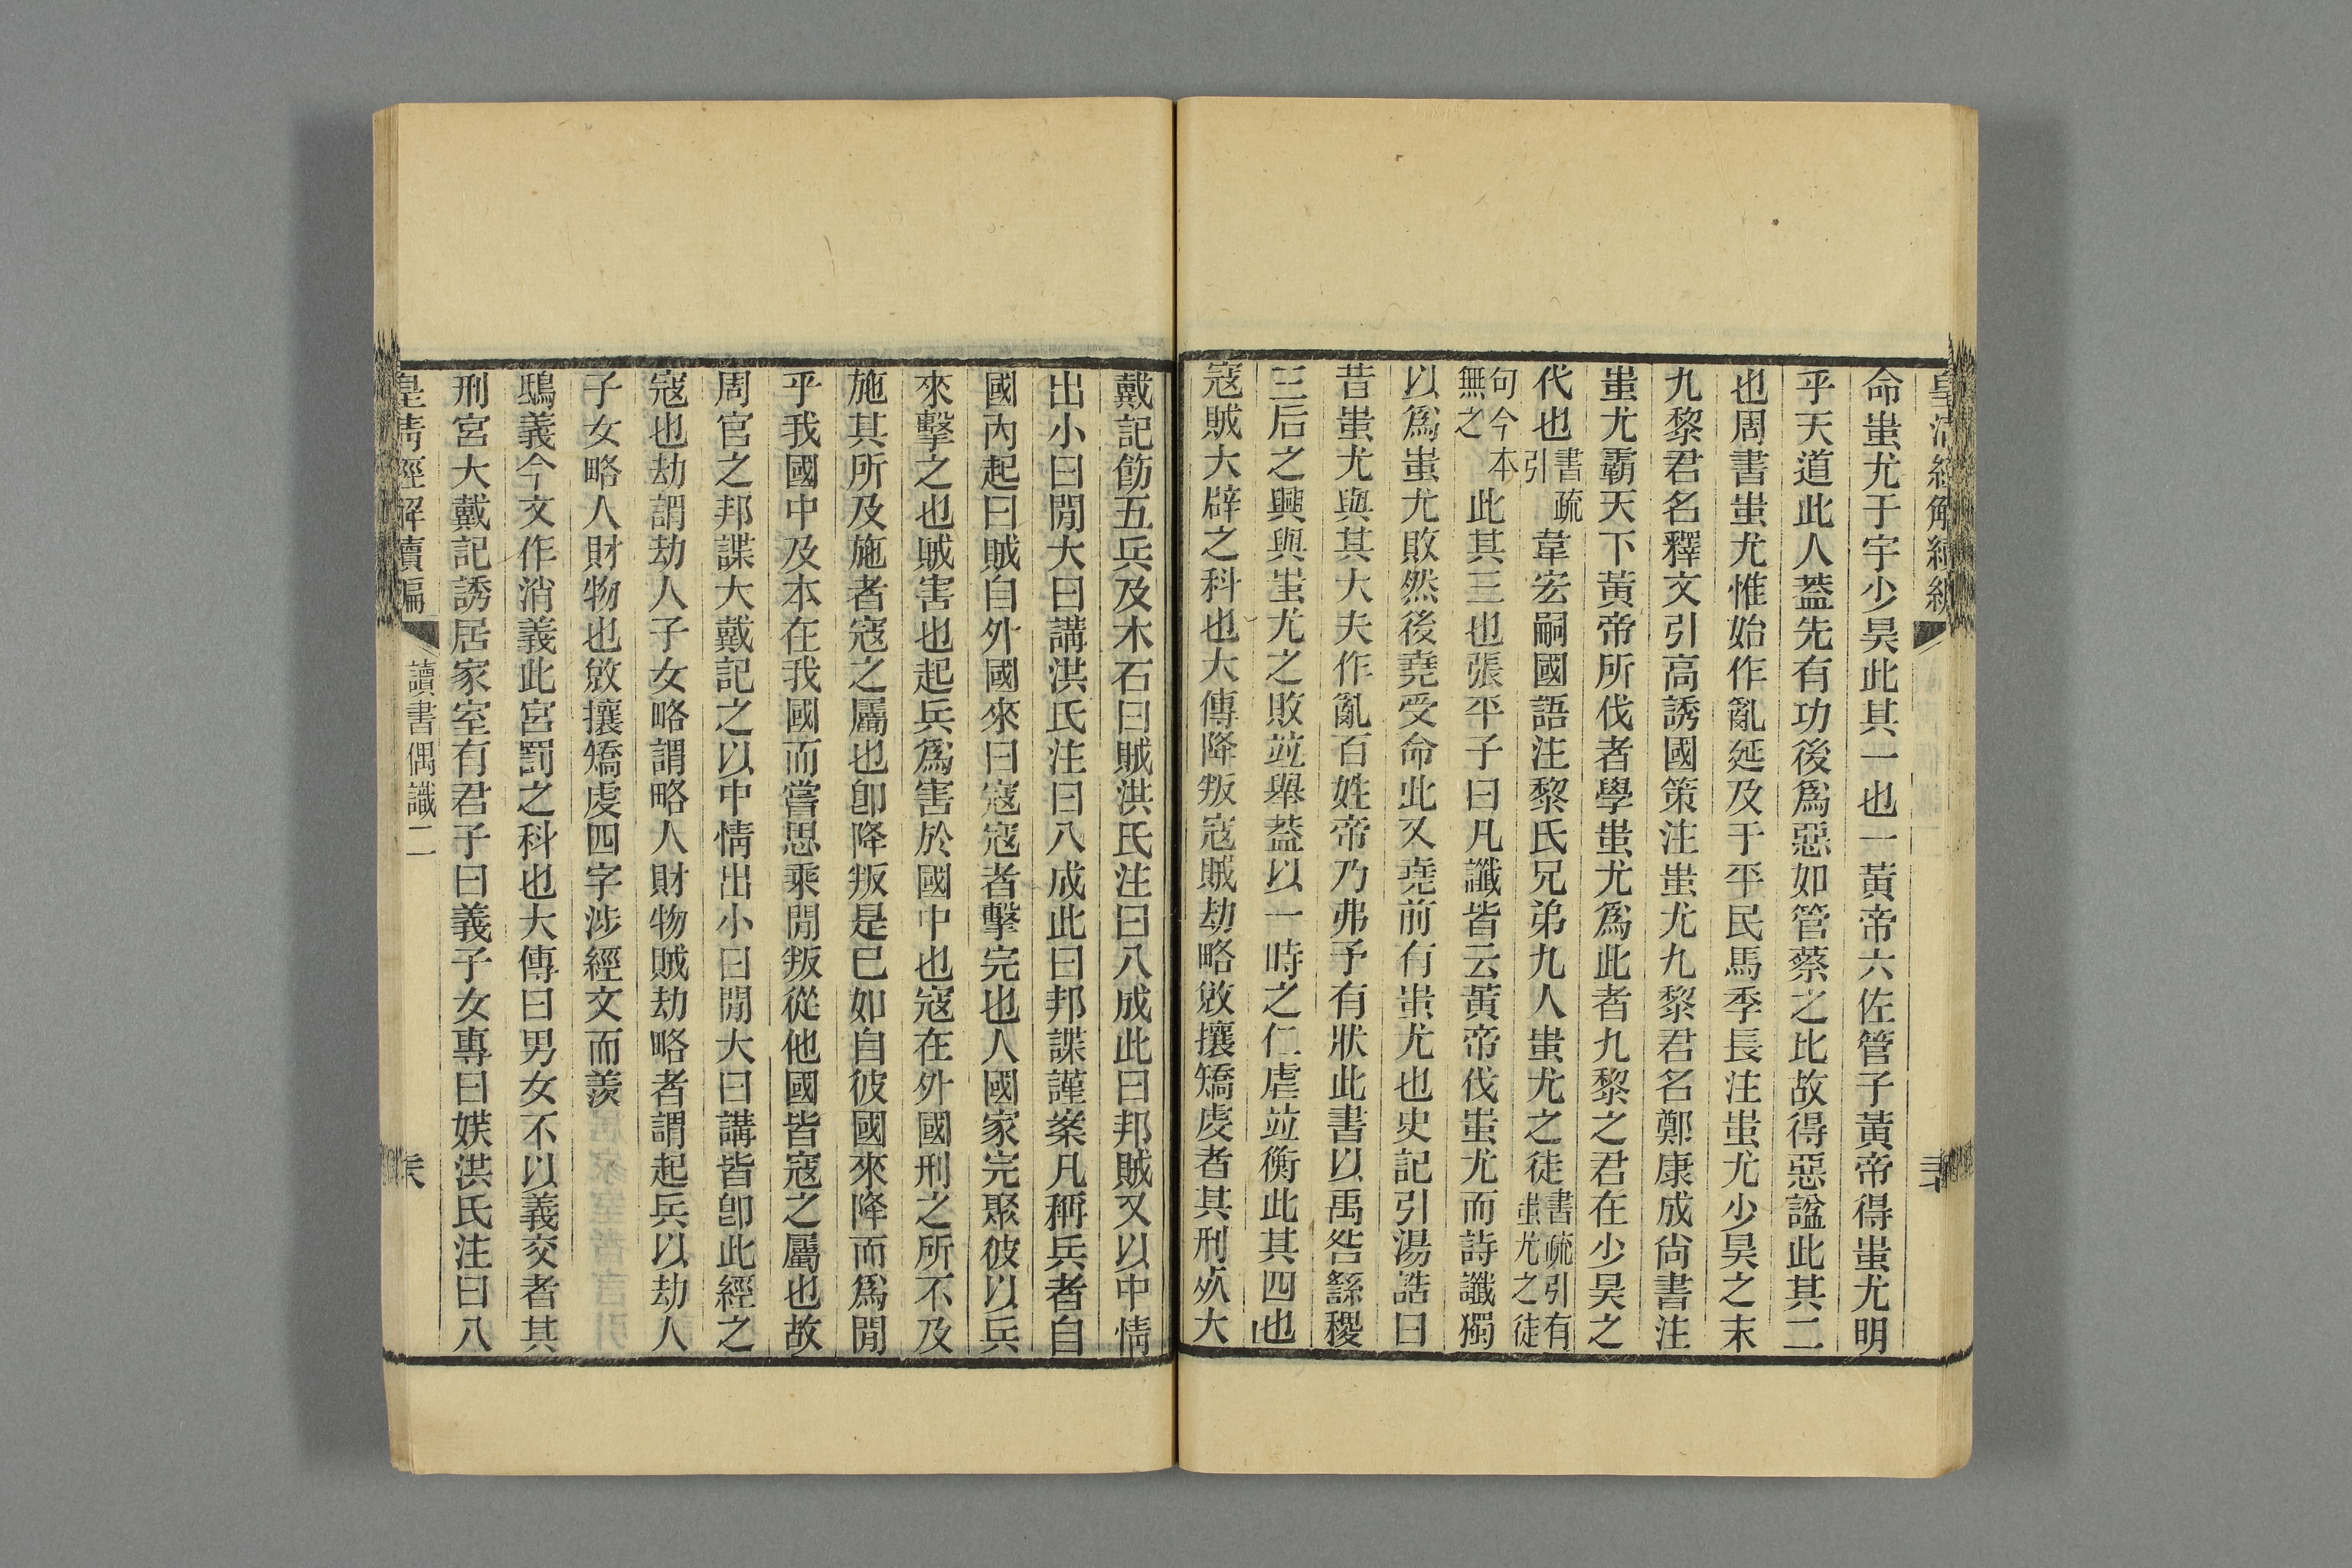 命蚩尤于宇少昊此其一也一黃帝六佐管子黃帝得蚩尤明
乎天道此人蓋先有功後爲惡如管蔡之比故得惡諡此其二
也周書蚩尤惟始作亂延及于平民馬季長注蚩尤少昊之末
九黎君名釋文引高誘國策注蚩尤九黎君名鄭康成尙書注
蚩尤霸天下黃帝所伐者學蚩尤爲此者九黎之君在少昊之
代也書疏引韋宏嗣國語注黎氏兄弟九人蚩尤之徒書疏引有蚩尤之徒
句今本無之此其三也張平子曰凡讖皆云黃帝伐蚩尤而詩讖獨
以爲蚩尤敗然後堯受命此又堯前有蚩尤也史記引湯誥曰
昔蚩尤與其大夫作亂百姓帝乃弗予有狀此書以禹咎繇稷
三后之興與蚩尤之敗竝舉蓋以一時之仁虐竝衡此其四也
寇賊大辟之科也大傳降叛寇賊劫略敓攘矯虔者其刑㱙大
戴記飭五兵及木石曰賊洪氏注曰八成此曰邦賊又以中情
出小曰閒大曰講洪氏注曰八成此曰邦諜謹案凡稱兵者自
國內起曰賊自外國來曰寇寇者擊完也人國家完聚彼以兵
來擊之也賊害也起兵爲害於國中也寇在外國刑之所不及
施其所及施者寇之屬也卽降叛是已如自彼國來降而爲閒
乎我國中及本在我國而嘗思乘閒叛從他國皆寇之屬也故
周官之邦諜大戴記之以中情出小曰閒大曰講皆卽此經之
寇也劫謂劫人子女略謂略人財物賊劫略者謂起兵以劫人
子女略人財物也敓攘矯虔四字涉經文而羨
鴟義今文作消義此宮罰之科也大傳曰男女不以義交者其
刑宮大戴記誘居家室有君子曰義子女專曰媄洪氏注曰八
皇清經解續編
讀書偶識二